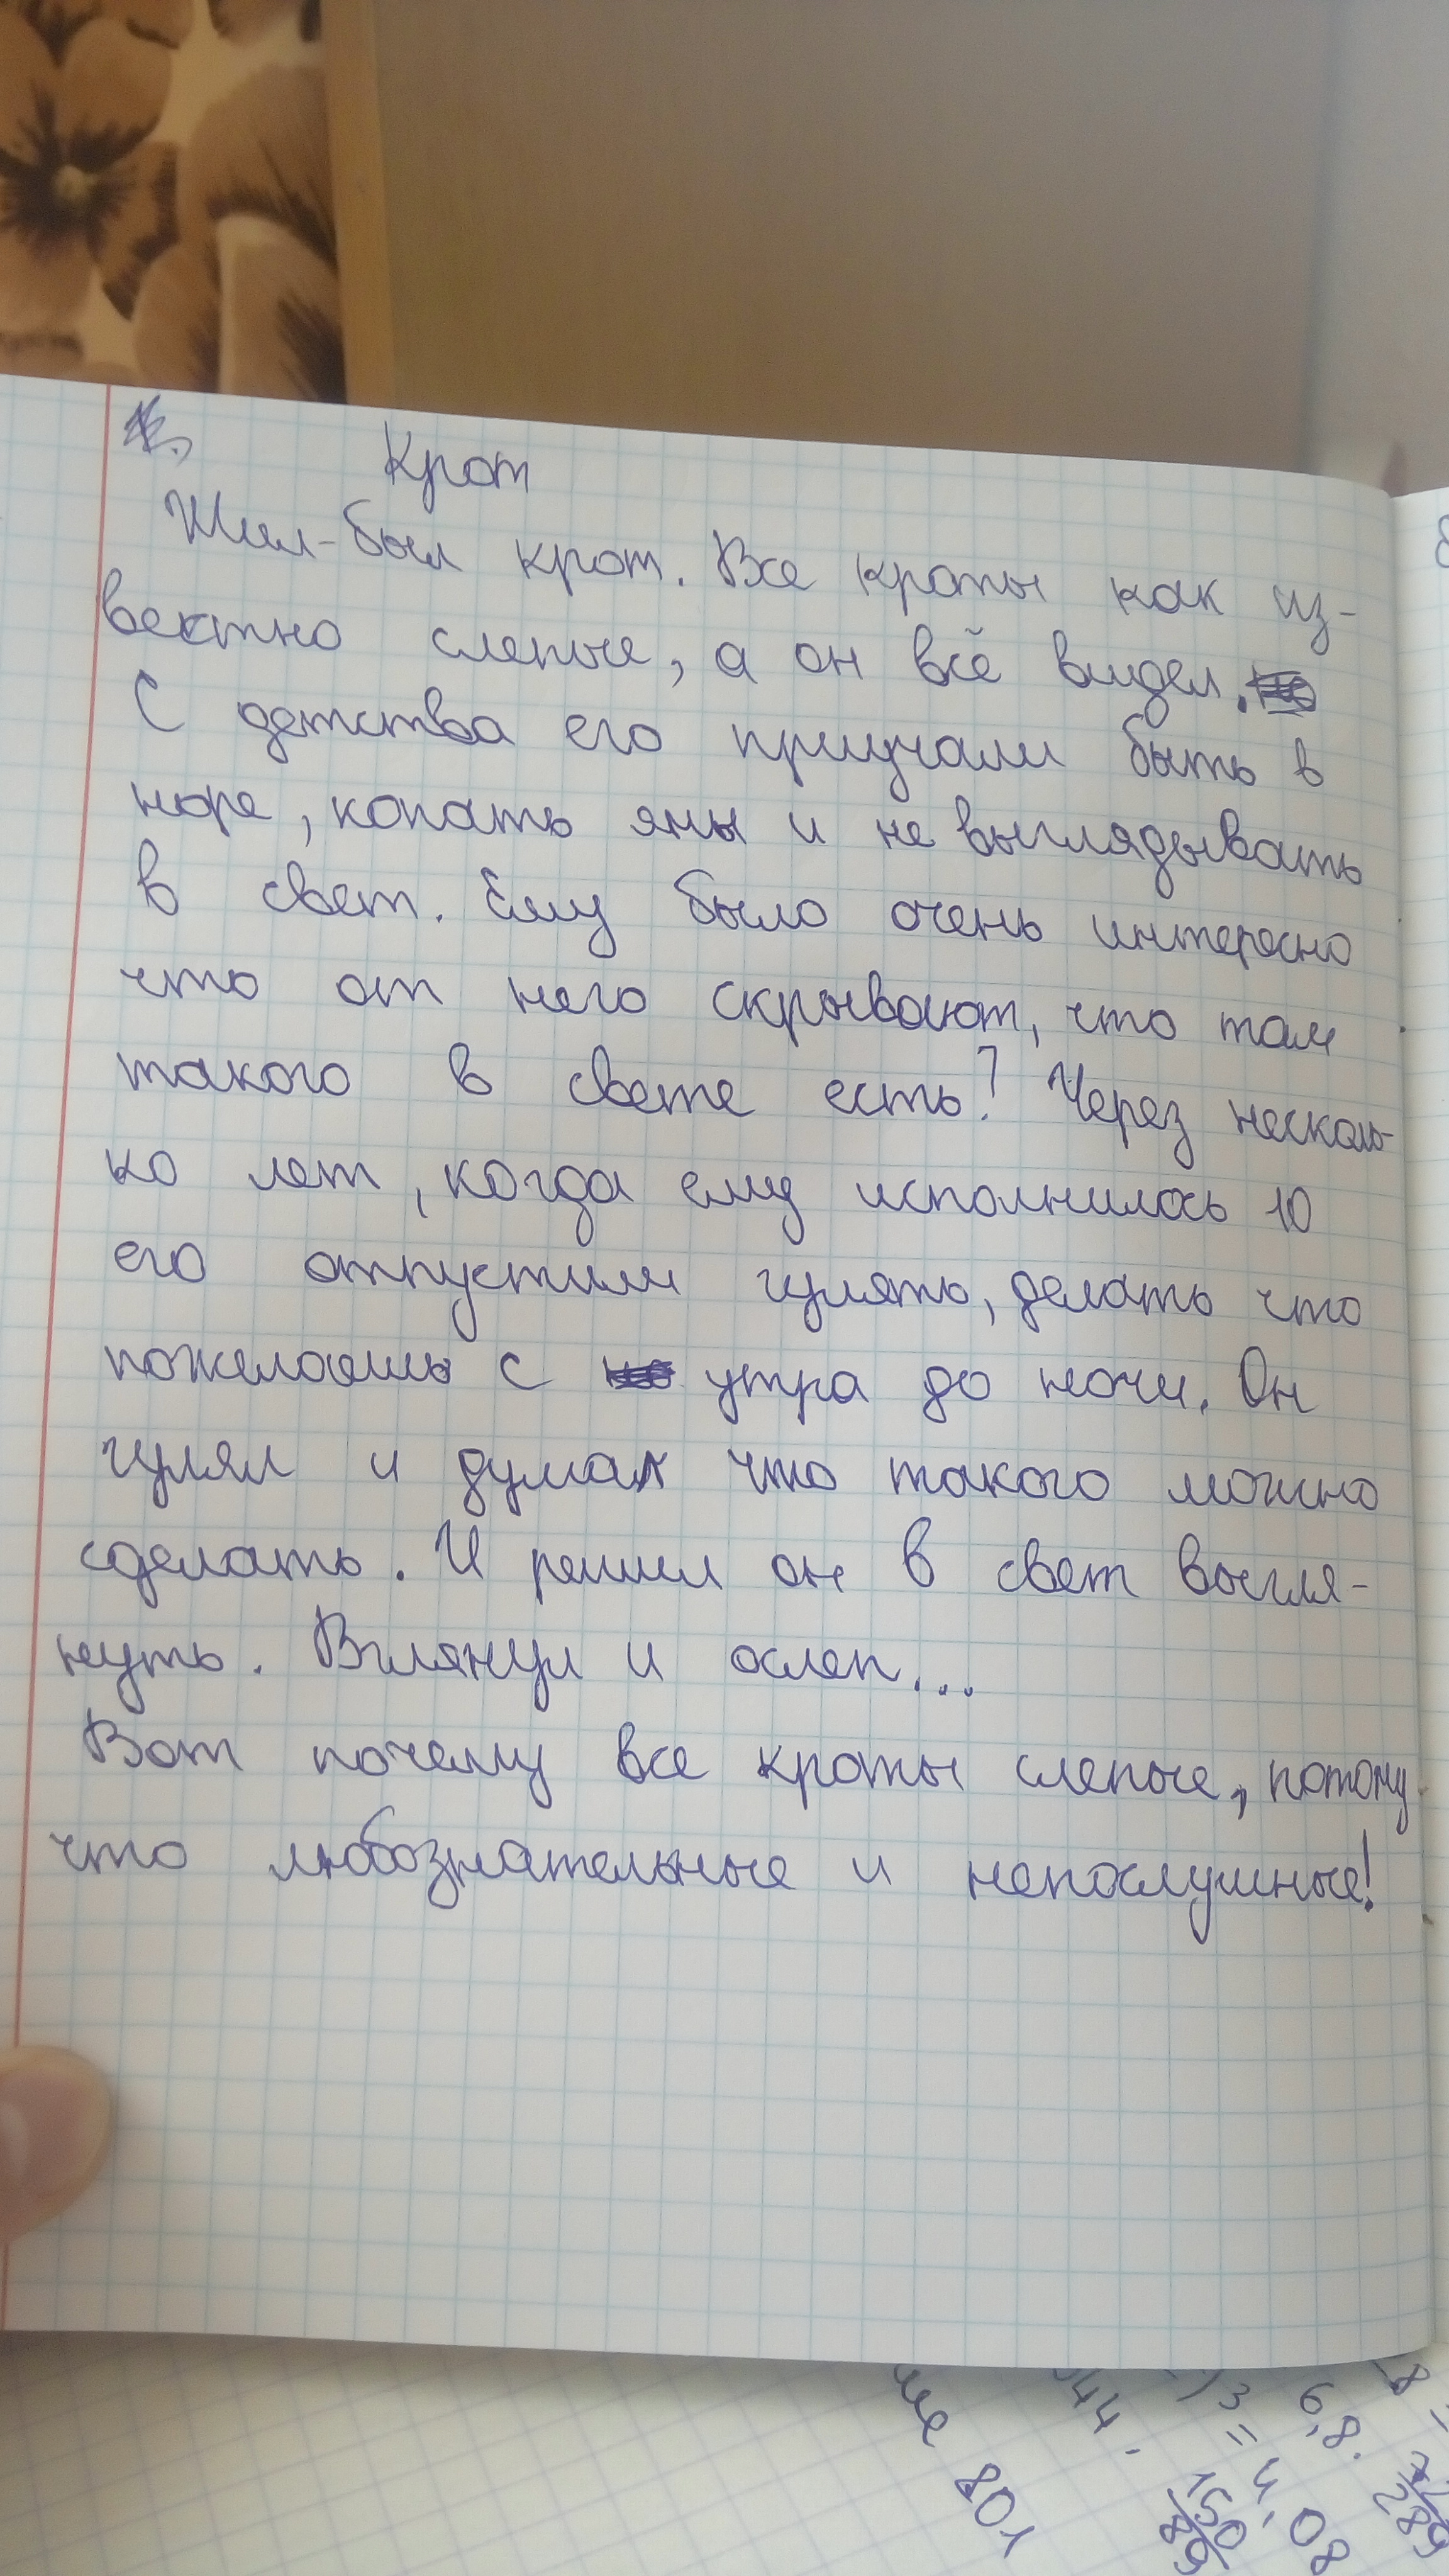 Крот
Жил-был крот. Все кроты как из-
вестно слепые, а он всё видел.
С детства его приучали быть в
норе, копать ямы и не выглядывать
в свет. Ему было очень интересно
что от него скрывают, что там
такого в свете есть? Через несколь-
ко лет, когда ему исполнилось 10
его отпустили гулять, делать что
пожелаешь с утра до ночи. Он
гулял и думал что такого можно
сделать. И решил он в свет выгля-
нуть. Вглянул и ослеп...
Вот почему все кроты слепые, потому
что любознательные и непослушные!
801